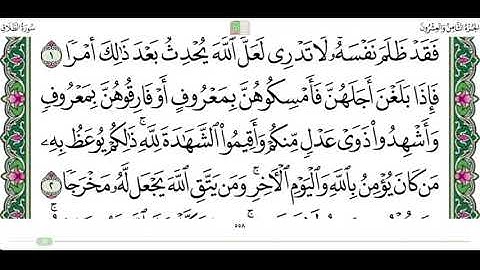 سُورَةُ الطَّلَاقِ الجُزْءُ الثَّامِنُ وَالعِشْرُونَ
فَقَدْ ظَلَمَ نَفْسَهُۥ لَا تَدْرِى لَعَلَّ ٱللَّهَ يُحْدِثُ بَعْدَ ذَٰلِكَ أَمْرًا ١
فَإِذَا بَلَغْنَ أَجَلَهُنَّ فَأَمْسِكُوهُنَّ بِمَعْرُوفٍ أَوْ فَارِقُوهُنَّ بِمَعْرُوفٍ
وَأَشْهِدُوا۟ ذَوَىْ عَدْلٍ مِّنكُمْ وَأَقِيمُوا۟ ٱلشَّهَٰدَةَ لِلَّهِ ۚ ذَٰلِكُمْ يُوعَظُ بِهِۦ
مَن كَانَ يُؤْمِنُ بِٱللَّهِ وَٱلْيَوْمِ ٱلْأَخِرِ ۚ وَمَن يَتَّقِ ٱللَّهَ يَجْعَل لَّهُۥ مَخْرَجًا ٢
٥٥٨